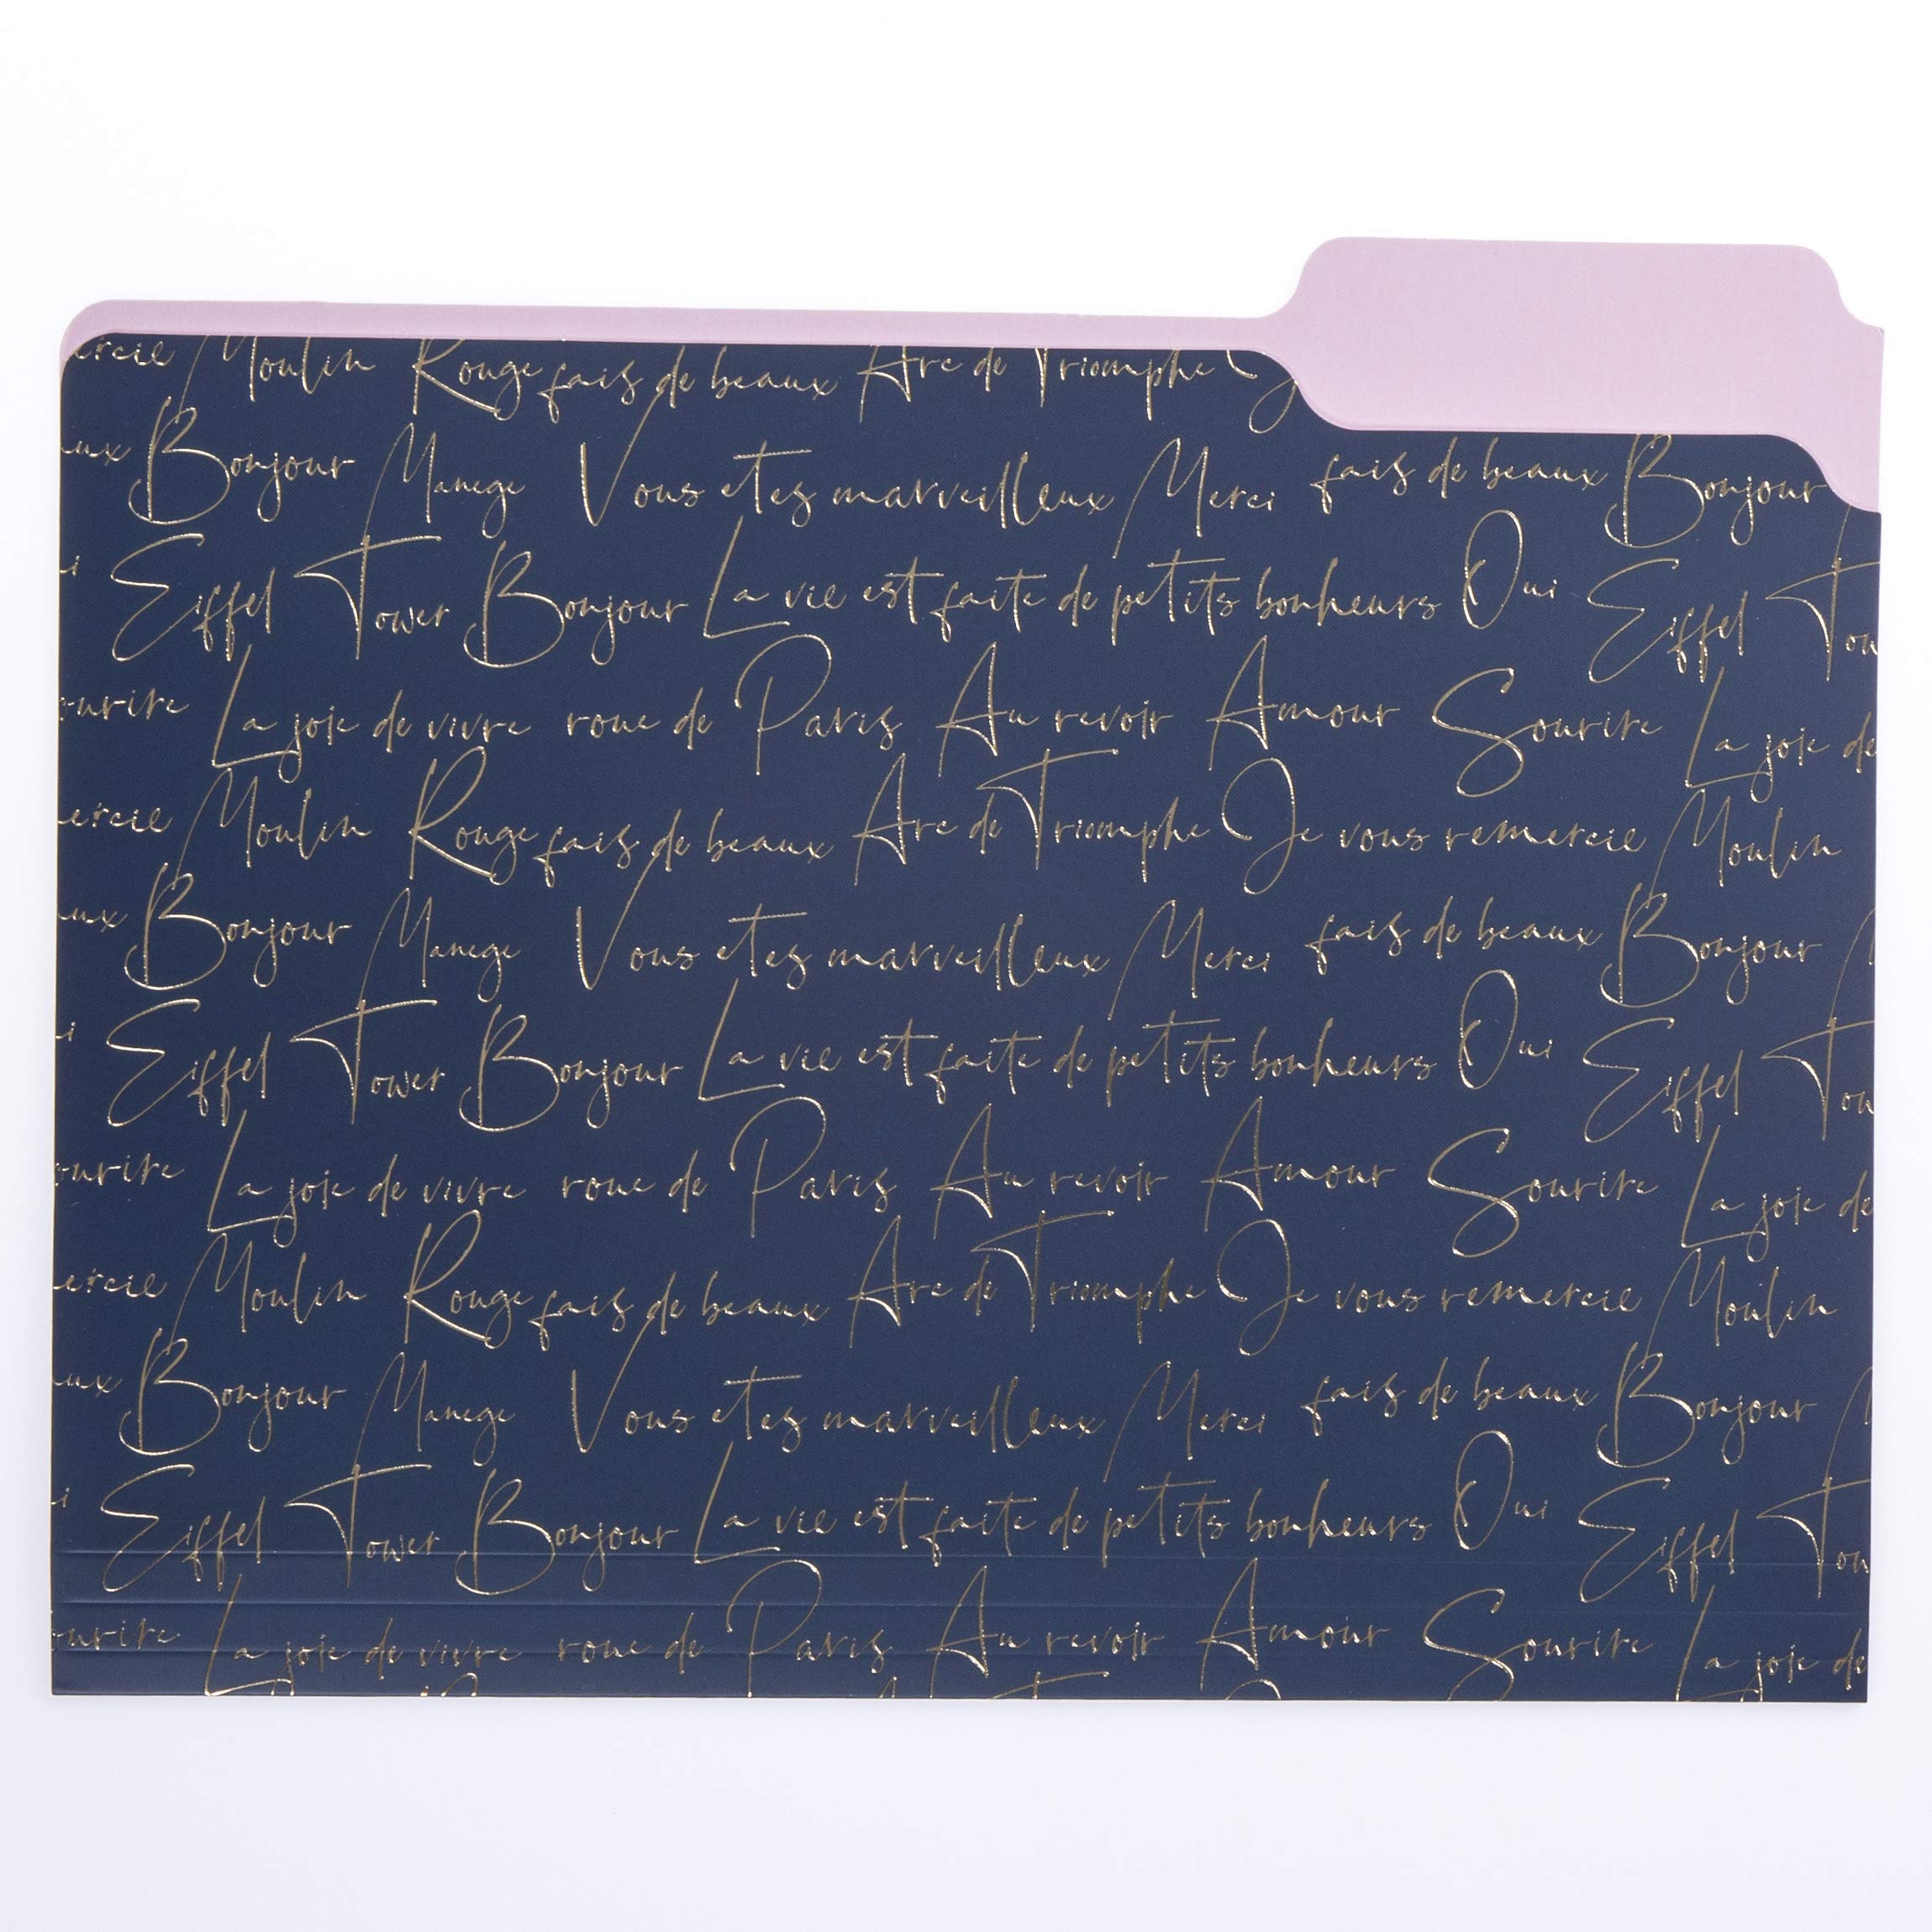 ercie Moulin Rouge fais de beaux Arc de Triomphe J
aux Bonjour Manege Vous etes marveilleux Merci fais de beaux Bonjour
i Eiffel Tower Bonjour La vie est faite de petits bonheurs Oui Eiffel Tow
ourire La joie de vivre roue de Paris Au revoir Amour Sourire La joie de
ercie Moulin Rouge fais de beaux Arc de Triomphe Je vous remercie Moulin
aux Bonjour Manege Vous etes marveilleux Merci fais de beaux Bonjour
i Eiffel Tower Bonjour La vie est faite de petits bonheurs Oui Eiffel Tow
ourire La joie de vivre roue de Paris Au revoir Amour Sourire La joie de
ercie Moulin Rouge fais de beaux Arc de Triomphe Je vous remercie Moulin
aux Bonjour Manege Vous etes marveilleux Merci fais de beaux Bonjour
i Eiffel Tower Bonjour La vie est faite de petits bonheurs Oui Eiffel Tow
ourire La joie de vivre roue de Paris Au revoir Amour Sourire La joie de